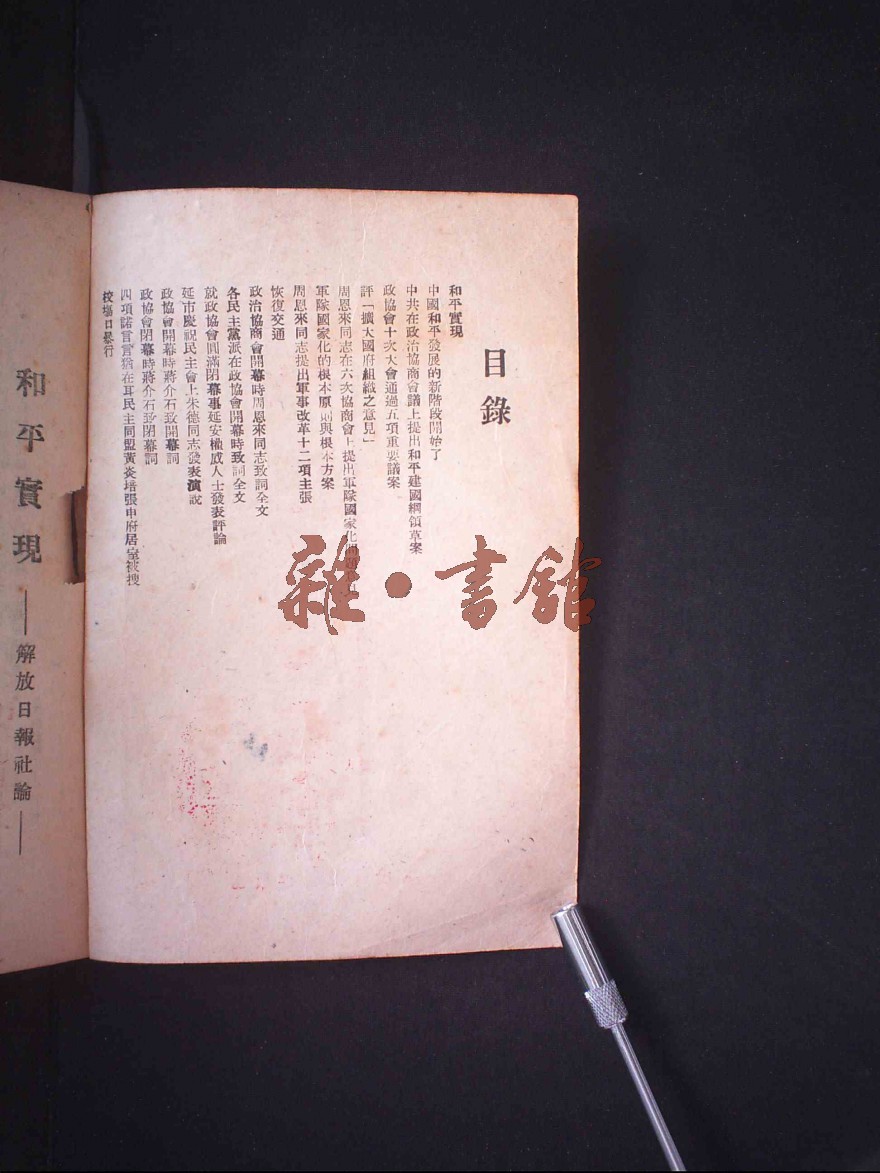 目錄
和平實現
中國和平發展的新階段開始了
中共在政治協商會議上提出和平建國綱領草案
政協會十次大會通過五項重要議案
評「擴大國府組織之意見」
周恩來同志在六次協商會上提出軍隊國家化
軍隊國家化的根本原則與根本方案
周恩來同志提出軍事改革十二項主張
恢復交通
政治協商會開幕時周恩來同志致詞全文
各民主黨派在政協會開幕時致詞全文
就政協會圓滿閉幕事延安權威人士發表評論
延市慶祝民主會上朱德同志發表演說
政協會開幕時蔣介石致開幕詞
政協會閉幕時蔣介石致閉幕詞
四項諾言言猶在耳民主同盟黃炎培張申府居室被搜
校場口暴行
和平實現
——解放日報社論——
雜·書館